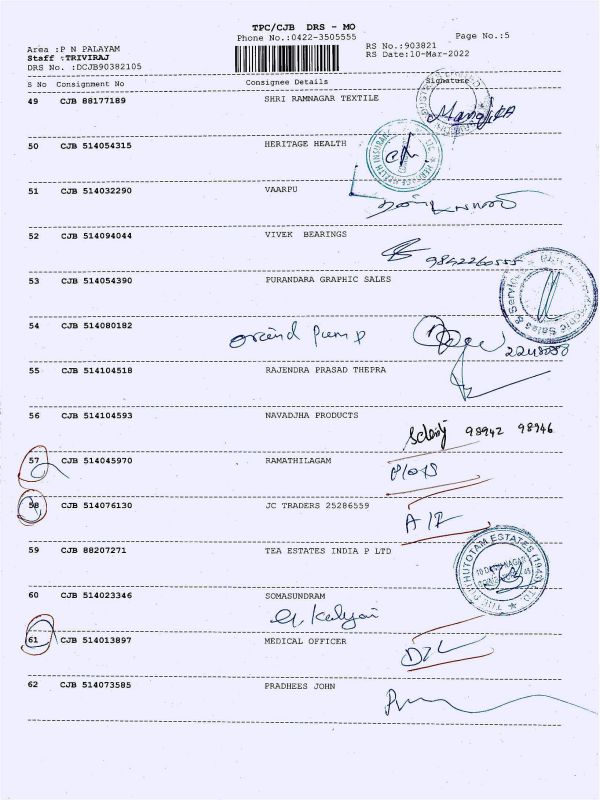 TPC/CJB DRS - MO
Phone No.:0422-3505555 Page No.:5
Area :P N PALAYAM RS No.:903821
Staff :TRIVIRAJ RS Date:10-Mar-2022
DRS No. :DCJB90382105
S No Consignment No Consignee Details Signature
49 CJB 88177189 SHRI RAMNAGAR TEXTILE
50 CJB 514054315 HERITAGE HEALTH
51 CJB 514032290 VAARPU
52 CJB 514094044 VIVEK BEARINGS
9842260555
53 CJB 514054390 PURANDARA GRAPHIC SALES
54 CJB 514080182
55 CJB 514104518 RAJENDRA PRASAD THEPRA
56 CJB 514104593 NAVADJHA PRODUCTS
98942 98946
57 CJB 514045970 RAMATHILAGAM
58 CJB 514076130 JC TRADERS 25286559
59 CJB 88207271 TEA ESTATES INDIA P LTD
60 CJB 514023346 SOMASUNDRAM
61 CJB 514013897 MEDICAL OFFICER
62 CJB 514073585 PRADHEES JOHN